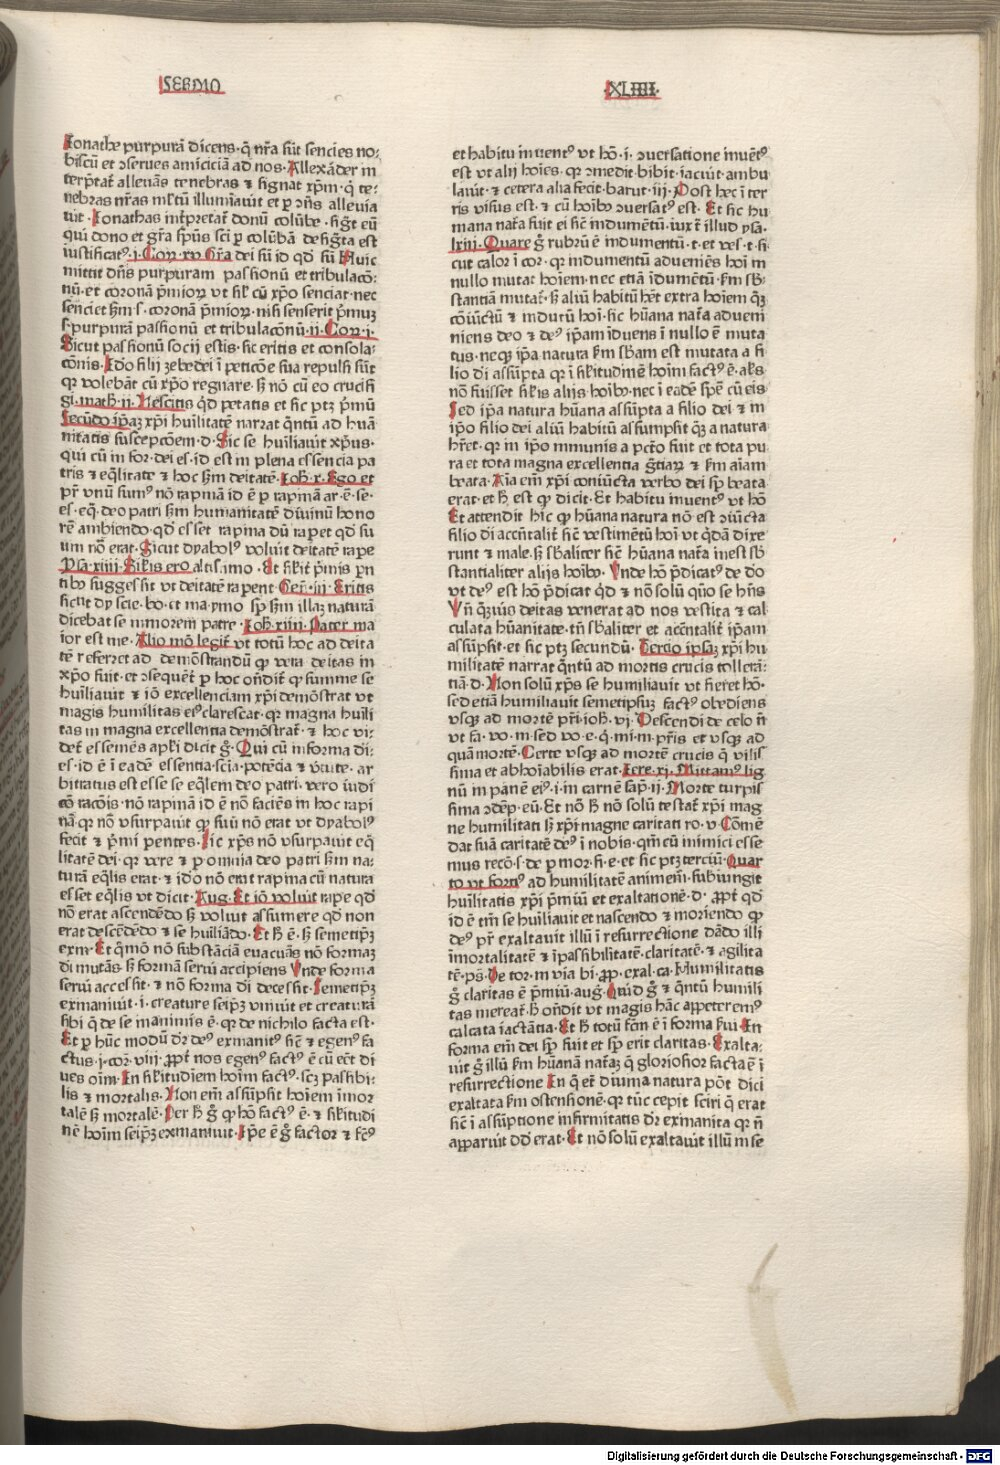 SERMO
XLIIII
Ionathe purpurā dicens· q̄ nr̄a sūt sencies no:
biscū et ɔserues amiciciā ad nos· Allexāder in
terp̄tat̄ alleuās tenebras ⁊ signat xp̄m· q̄ te:
nebras nr̄as ml̄tū illuīauit et p ɔn̄s alleuia
uit· Ionathas int̄pretat̄ donū colūbe· siḡt eū
qui dono et gr̄a sp̄us sc̄i p colūbā desiḡta est
iustificatꝰ· i· Cor· xv Gr̄a dei sū id qd̄ sū Huic
mittit dn̄s purpuram passionū et tribulacō:
nū· et coronā p̄mioꝝ vt sil̄ cū xp̄o senciat· nec
senciet sm̄ s· coronā p̄mioꝝ· nisi senserit p̄muꝫ
s· purpurā passionū et tribulacōnū· ii· Cor· i·
Sicut passionū socij estis· sic eritis et consola:
cōnis· Ido filij zebedei ī peticōe sua repulsi sūt
qꝛ volebāt cū xp̄o regnare· sꝫ nō cū eo crucifi
gi· math· ii· Nescitis qd̄ petatis et sic ptꝫ p̄mū
Secūdo ip̄aꝫ xp̄i huilitatē narrat q̄ntū ad huā
nitatis suscepcōem· d· Sic se huīliauit xp̄us·
qui cū in for· dei es· id est in plena essencia pa
tris ⁊ eq̄litate ⁊ hoc sm̄ deitatē· Ioh̄· x· Ego et
pr̄ vnū sumꝰ nō rapinā id ē p rapinā ar· ē· se·
es· eq̄· deo patri sm̄ humanitatē diuinū hono
rē ambiendo· qd̄ esset rapina dū rapet qd̄ su
um nō erat· Sicut dyabolꝰ voluit deitatē rape
Psā· xiiii· Sil̄is ero altissimo· Et sil̄it̄ p̄mis pn
tibꝰ suggessit vt deitatē rapent· Gen̄· iii· Eritis
sicut dy scie· bo· et ma· ymo sp̄ sm̄ illaꝫ naturā
dicebat se minorem patre· Ioh̄· xiiii· Pater ma
ior est me· Alio mō legit̄ vt totū hoc ad deita
tē referret ad demōstrandū ꝙ vera deitas in
xp̄o fuit· et ɔsequēt̄ p hoc oñdit̄ ꝙ summe se
huīliauit ⁊ iō excellenciam xp̄i demōstrat vt
magis humilitas eiꝰ clarescat· qꝛ magna huīli
tas in magna excellentia demōstrat̄· ⁊ hoc vi·
det̄ esse mēs apl̄i dicit g̊· Qui cū in forma di·
es· id ē ī eadē essentia· scīa· potēcia ⁊ v̄tute· ar
bitratus est esse se eq̄lem deo patri· vero iudi
cō racōis· nō rapinā id ē nō faciēs in hoc rapi
nā· qꝛ nō vsurpauit ꝙ suū nō erat vt dyabolꝰ
fecit ⁊ p̄mi pentes· Hic xp̄s nō vsurpauit eq̄
litatē dei· qꝛ vere ⁊ p omnia deo patri sm̄ na:
turā eq̄lis erat· ⁊ ido nō erat rapina cū natura
esset eq̄lis vt dicit· Aug· Et iō voluit rape qd̄
nō erat ascendēdo sꝫ voluit assumere qd̄ non
erat descēdēdo ⁊ se huiliādo· Et h̄ ē· sꝫ semetip̄ꝫ
exin· Et q̄mō nō substāciā euacuās nō formaꝫ
di mutās· sꝫ formā serui accipiens Vnde forma
serui accessit· ⁊ nō forma di decessit· Semetip̄ꝫ
exinaniuit· i· creature seip̄ꝫ vniuit et creaturā
sibi q̄ de se inanimis ē· qꝛ de nichilo facta est·
Et p hūc modū dꝛ deꝰ exinanitꝰ sic̄ ⁊ egenꝰ fa
ctus· i· cor· viii· ꝓpt̄ nos egenꝰ factꝰ ē cū eēt di
ues oīm· In sil̄itudīem hoīm factꝰ· scꝫ passibi·
lis ⁊ mortalis· Non em̄ assūpsit hoīem īmor
talē sꝫ mortalē· Per h̄ g̊ ꝙ hō factꝰ ē· ⁊ sil̄itudi
nē hoīm seip̄ꝫ exinaniuit· Ip̄e ē g̊ factor ⁊ fcꝰ
et habitu inuentꝰ vt hō· i· ɔuersatione inuētꝰ
est vt alij hoīes· qꝛ ɔmedit· bibit· iacuit· ambu
lauit· ⁊ cetera alia fecit· barut· iij· Post hec ī ter
ris visus est· ⁊ cū hoībꝰ ɔuersatꝰ est· Et sic hu
mana nat̄a fuit ei sic̄ indumētū· iuxt̄ illud ysā·
lxiii· Quare g̊ rubrū ē indumentū· t· et ves· t· si
cut calor ī cor· qꝛ indumentū adueniēs hoī in
nullo mutat hoīem· nec etiā īdumētū· sm̄ sb̄·
stantiā mutat̄· sꝫ aliū habitū hēt extra hoīem q̄ꝫ
cōiūctū ⁊ indutū hoī· sic hūana nat̄a adueni
niens deo ⁊ deꝰ ip̄am īduens ī nullo ē muta
tus· neqꝫ ip̄a natura sm̄ sb̄am est mutata a fi
lio di assūpta qꝛ ī sil̄itudinē hoīm factꝰ ē· al̄s
nō fuisset sil̄is alijs hoībꝰ· nec ī eadē spē cū eis
Sed ip̄a natura hūana assūpta a filio dei ⁊ in
ip̄o filio dei aliū habitū assumpsit q̄ꝫ a natura
hr̄et· qꝛ in ip̄o īmunis a pctō fuit et tota pu
ra et tota magna excellentia gr̄tiaꝝ ⁊ sm̄ aīam
beata· Aīa em̄ xp̄i coniūcta verbo dei sp̄ beata
erat· et h̄ est ꝙ dicit· Et habitu inuentꝰ vt hō
Et attendit hic̄ ꝙ hūana natura nō est ɔiūcta
filio di accn̄talit̄ sic̄ vestimētū hoī vt q̄dā dixe
runt ⁊ male· sꝫ sb̄aliter sic̄ hūana nat̄a inest sb̄
stantialiter alijs hoībꝰ· Vnde hō p̄dicatꝰ de do
vt deꝰ est hō p̄dicat qd̄ ⁊ nō solū quo se hn̄s
Vn̄ q̄ꝫuis deitas venerat ad nos vestita ⁊ cal
culata hūanitate· tn̄ sb̄aliter et accn̄talit̄ ip̄am
assūpsit· et sic ptꝫ secundū· Tercio ipsaꝫ xp̄i hu
militatē narrat q̄ntū ad mortis crucis tollerā:
tiā· d· Non solū xp̄s se humiliauit vt fieret hō·
sed etiā humiliauit semetipsuꝫ factꝰ obediens
vsqꝫ ad mortē pr̄i· ioh̄· vj· Descendi de celo n̄
vt fa· vo· m· sed vo· e· q̄· mi· m· pr̄is et vsqꝫ ad
quā mortē· Certe vsqꝫ ad mortē crucis q̄ vilis
sima et abhoīabilis erat· Iere· xj· Mittamꝰ lig
nū in panē eiꝰ· i· in carnē sap̄· ii· Morte turpis
sima ɔdēp· eū· Et nō h̄ nō solū testat̄ xp̄i mag
ne humilitati sꝫ xp̄i magne caritati ro· v· Cōmē
dat suā caritatē deꝰ ī nobis· qm̄ cū inimici esse
mus recō· s· de p mor· fi· e· et sic ptꝫ terciū· Quar
to vt fortiꝰ ad humilitatē animem̄· subiungit
huīlitatis xp̄i p̄miū et exaltationē· d· ꝓpt̄ qd̄
id ē tm̄ se huīliauit et nascendo ⁊ moriendo ꝙ
deꝰ pr̄ exaltauit illū ī resurrectione dādo illi
īmortalitatē ⁊ īpassibilitatē· claritatē· ⁊ agilita
tē· ps̄· De tor· in via bi· ꝓp· exal· ca· Humilitatis
g̊ claritas ē p̄miū· aug̊· Quid g̊ ⁊ q̄ntū humili
tas mereat̄· h̄ oñdit vt magis hāc appeteremꝰ
calcata iactātia· Et h̄ totū fc̄m ē ī forma s̄ui In
forma em̄ dei sp̄ fuit et sp̄ erit claritas· Exalta:
uit g̊ illū sm̄ hūanā nat̄aꝫ q̄ gloriosior facta ē ī
resurrectione In q̄ et̄ diuina natura pōt dici
exaltata sm̄ ostensionē· qꝛ tūc cepit sciri q̄ erat
sic̄ ī assūptione infirmitatis dꝛ exinanita qꝛ n̄
apparuit dd̄ erat· Et nō solū exaltauit illū in se
Digitalisierung gefördert durch die Deutsche Forschungsgemeinschaft - DFG